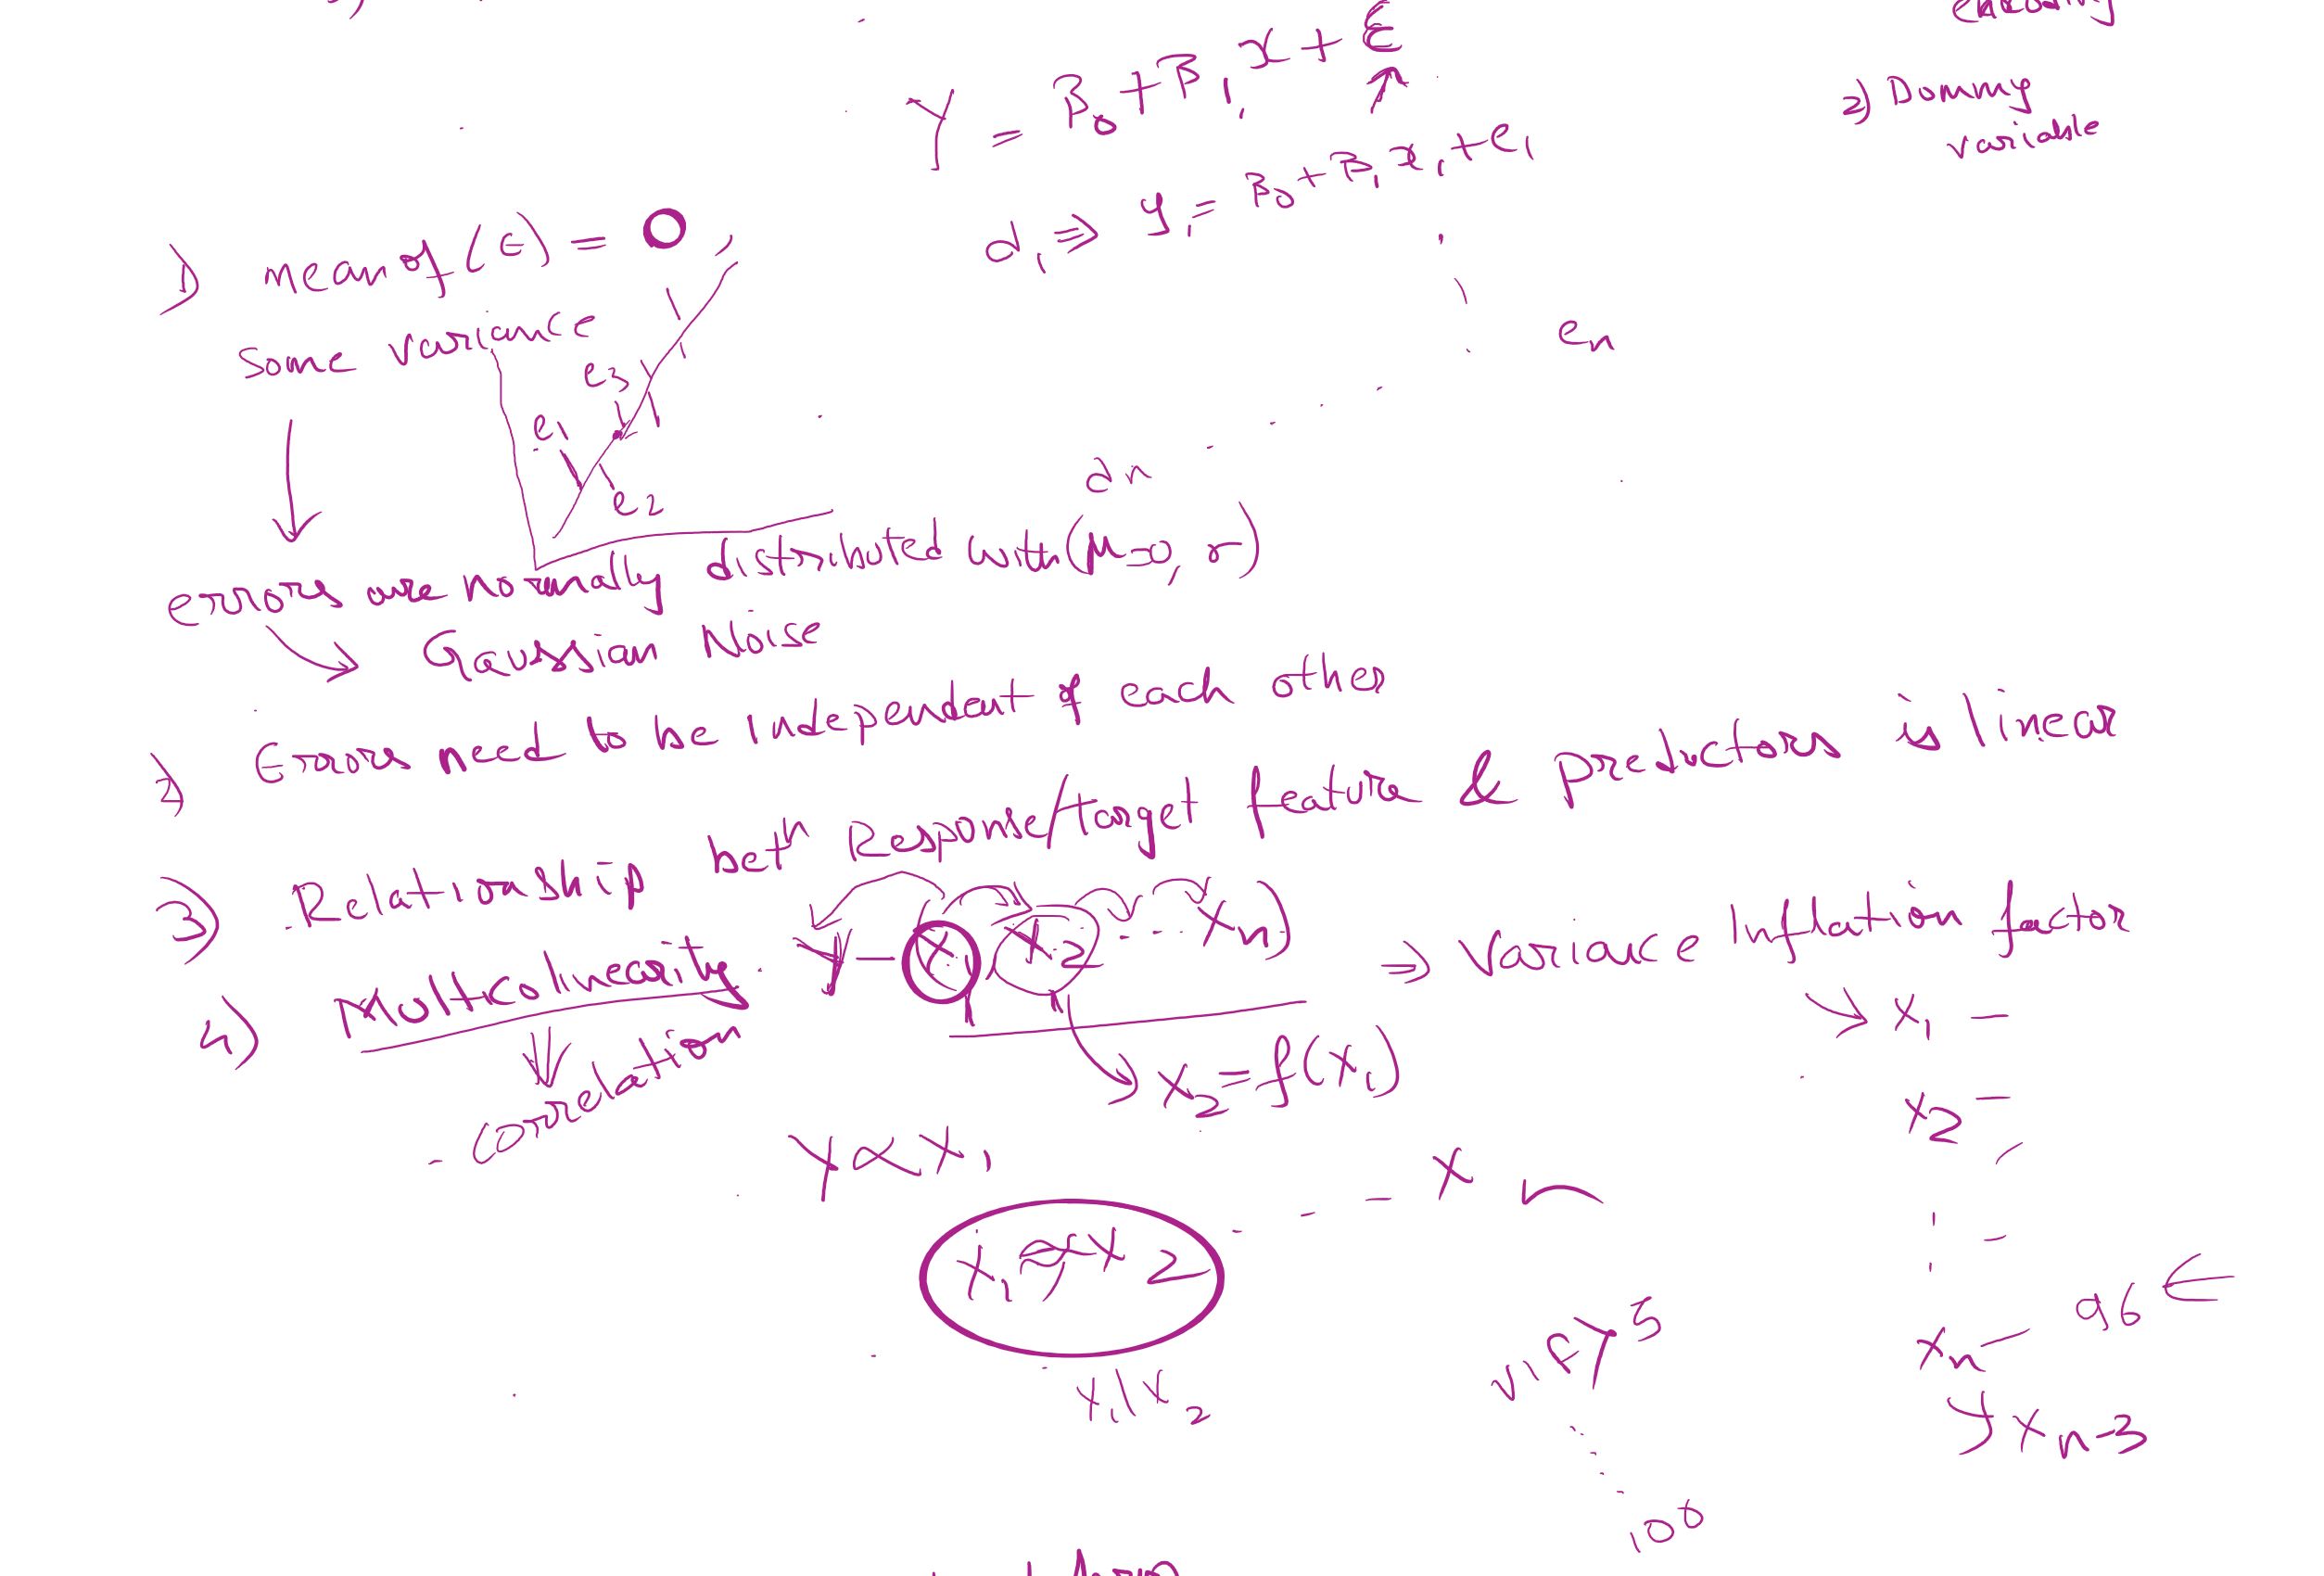 Y = β₀ + β₁ x + ε
2) Dummy
variable
d₁ ⇒ y₁ = β₀ + β₁ x₁ + e₁
1) mean of (ε) = 0,
Same variance
en
e₃
e₁
e₂
dn
errors are normally distributed with (μ=0, σ)
Gaussian Noise
2) Errors need to be independent of each other
3) Relationship betⁿ Response/target feature & predictors is linear
4) Multicolinearity. Y – X₁ (X₂ - - - Xn) ⇒ Variance Inflation factor
→ X₁ –
correlation
X₂ = f(X₁)
X₂ –
Y ∝ X₁
X₁ X₂ - - - X
Xn – 96 ←
V.i.f > 5
X₁ X₂
Xn-3
100